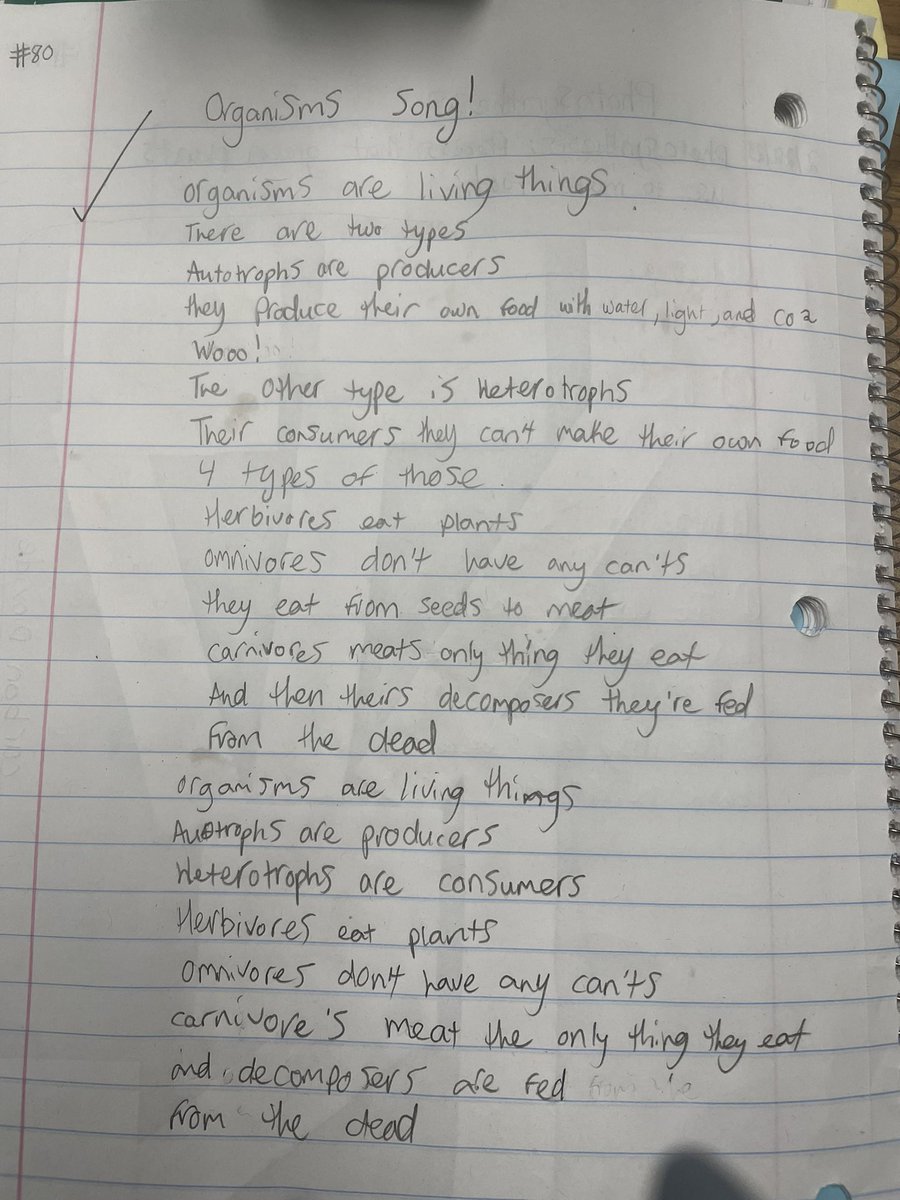 #80
Organisms Song!
organisms are living things.
There are two types
Autotrophs are producers
they produce their own food with water, light, and co2
Wooo!
The other type is Heterotrophs
Their consumers they can't make their own food
4 types of those.
Herbivores eat plants
omnivores don't have any can'ts
they eat from seeds to meat
carnivores meats only thing they eat
And then theirs decomposers they're fed
from the dead
organisms are living things
Auotrophs are producers
Heterotrophs are consumers
Herbivores eat plants
omnivores don't have any can'ts
carnivore's meat the only thing they eat
and decomposers are fed
from the dead